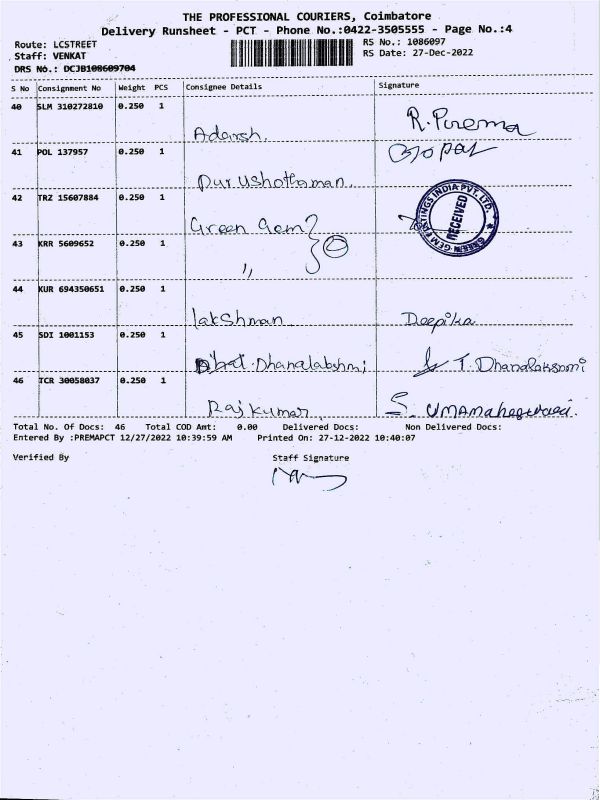 THE PROFESSIONAL COURIERS, Coimbatore
Delivery Runsheet - PCT - Phone No.:0422-3505555 - Page No.:4
Route: LCSTREET
RS No.: 1086097
Staff: VENKAT
RS Date: 27-Dec-2022
DRS No.: DCJB108609704
S No Consignment No Weight PCS Consignee Details Signature
40 SLM 310272810 0.250 1
Adarsh. R. Purema
41 POL 137957 0.250 1
Purushothaman. Gopal
42 TRZ 15607884 0.250 1
Green Gem
GREEN GEM CASTINGS INDIA PVT. LTD.
RECEIVED
43 KRR 5609652 0.250 1
"
44 KUR 694350651 0.250 1
lakshman Deepika
45 SDI 1001153 0.250 1
Dhanalakshmi T. Dhanalakshmi
46 TCR 30058037 0.250 1
Raj kumar S. UMAMaheswari.
Total No. Of Docs: 46 Total COD Amt: 0.00 Delivered Docs: Non Delivered Docs:
Entered By :PREMAPCT 12/27/2022 10:39:59 AM Printed On: 27-12-2022 10:40:07
Verified By Staff Signature